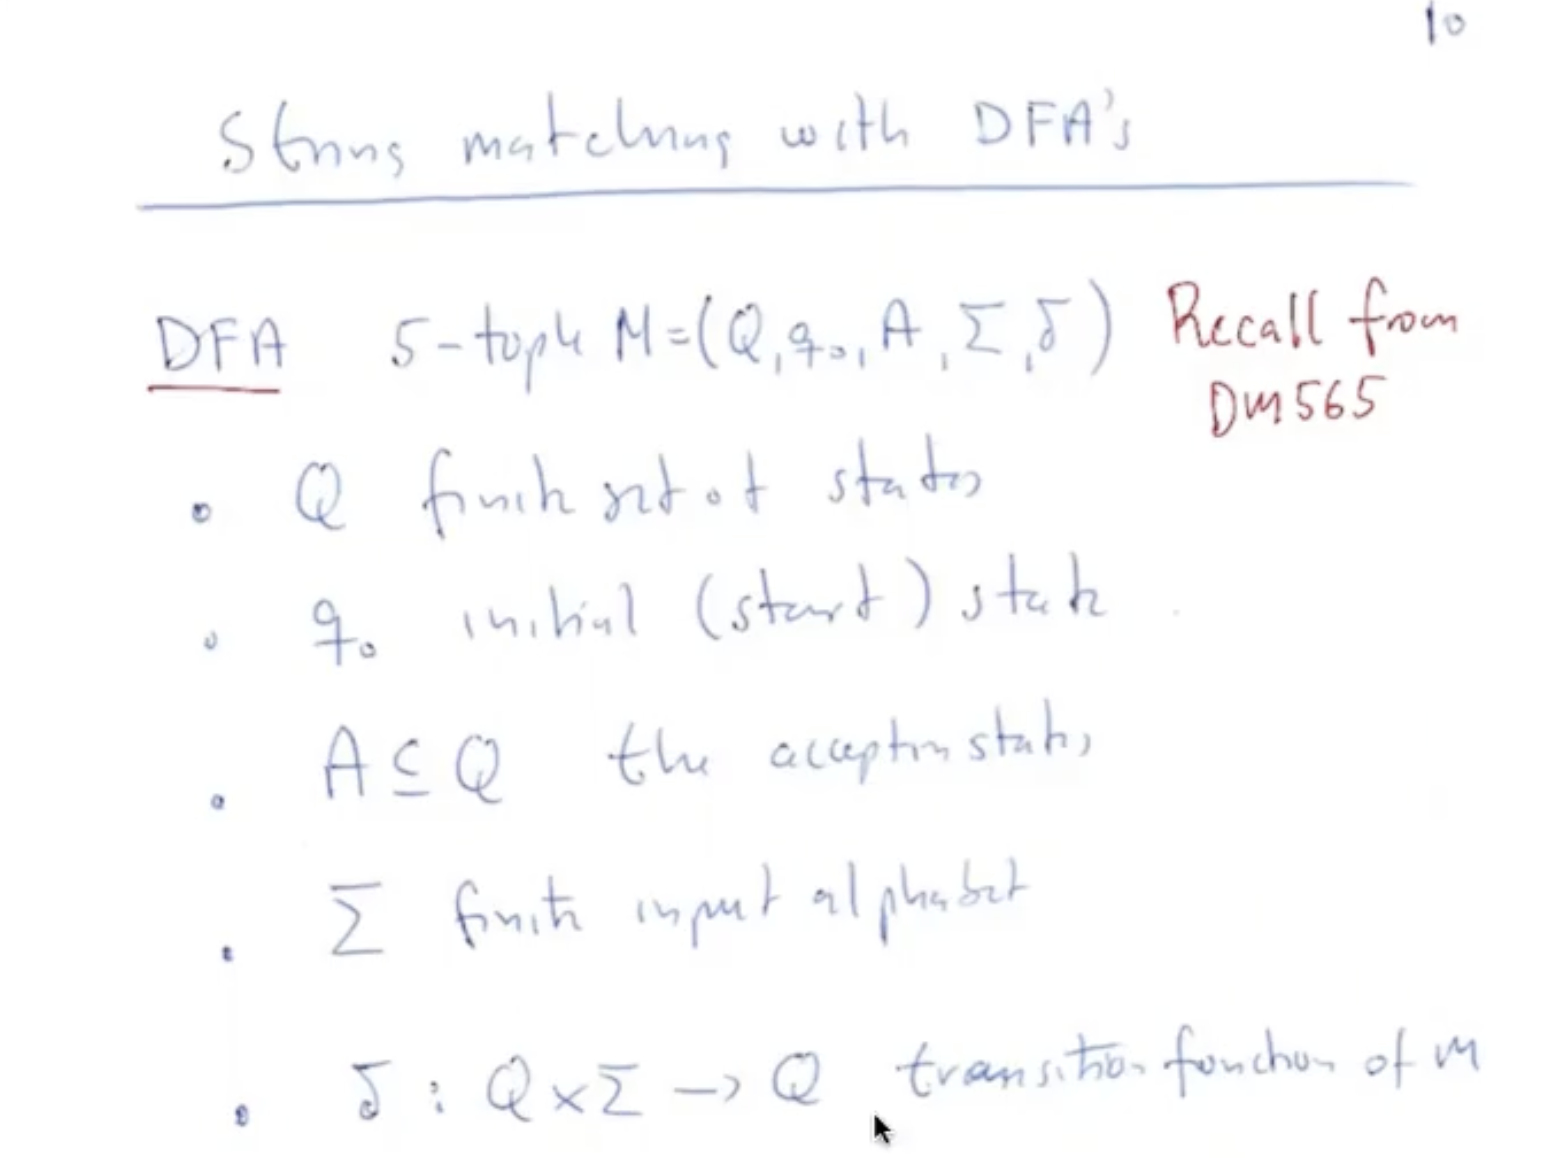 10
String matching with DFA's
DFA 5-tuple M=(Q,q₀,A,Σ,δ) Recall from
DM565
• Q finite set of states
• q₀ initial (start) state
• A⊆Q the accepting states
• Σ finite input alphabet
• δ: Q×Σ → Q transition function of M